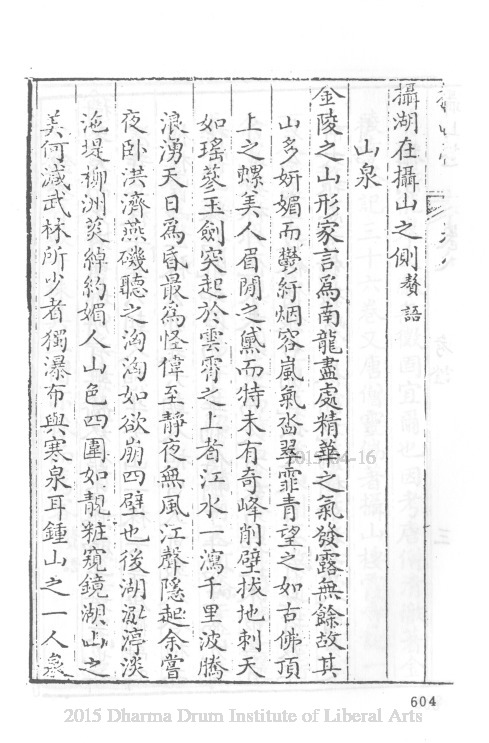 攝湖在攝山之側贅語
山泉
金陵之山形家言為南龍盡處精華之氣發露無餘故其
山多妍媚而鬱紆烟容嵐氣沓翠霏青望之如古佛頂
上之螺美人眉間之黛而特未有奇峰削壁拔地刺天
如瑤篸玉劍突起於雲霄之上者江水一瀉千里波騰
浪湧天日為昏最為怪偉至靜夜無風江聲隱起余嘗
夜卧洪濟燕磯聽之洶洶如欲崩四壁也後湖渟淡
沲堤柳洲荻綽約媚人山色四圍如靚粧窺鏡湖山之
美何減武林所少者獨瀑布與寒泉耳鍾山之一人泉
604
2015-04-16
2015 Dharma Drum Institute of Liberal Arts